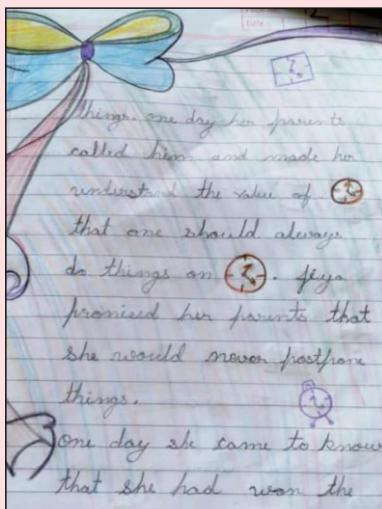 Date :
things. one day her parents
called him and made her
understand the value of
that one should always
do things on . jiya
promised her parents that
she would never postpone
things.
one day she came to know
that she had won the